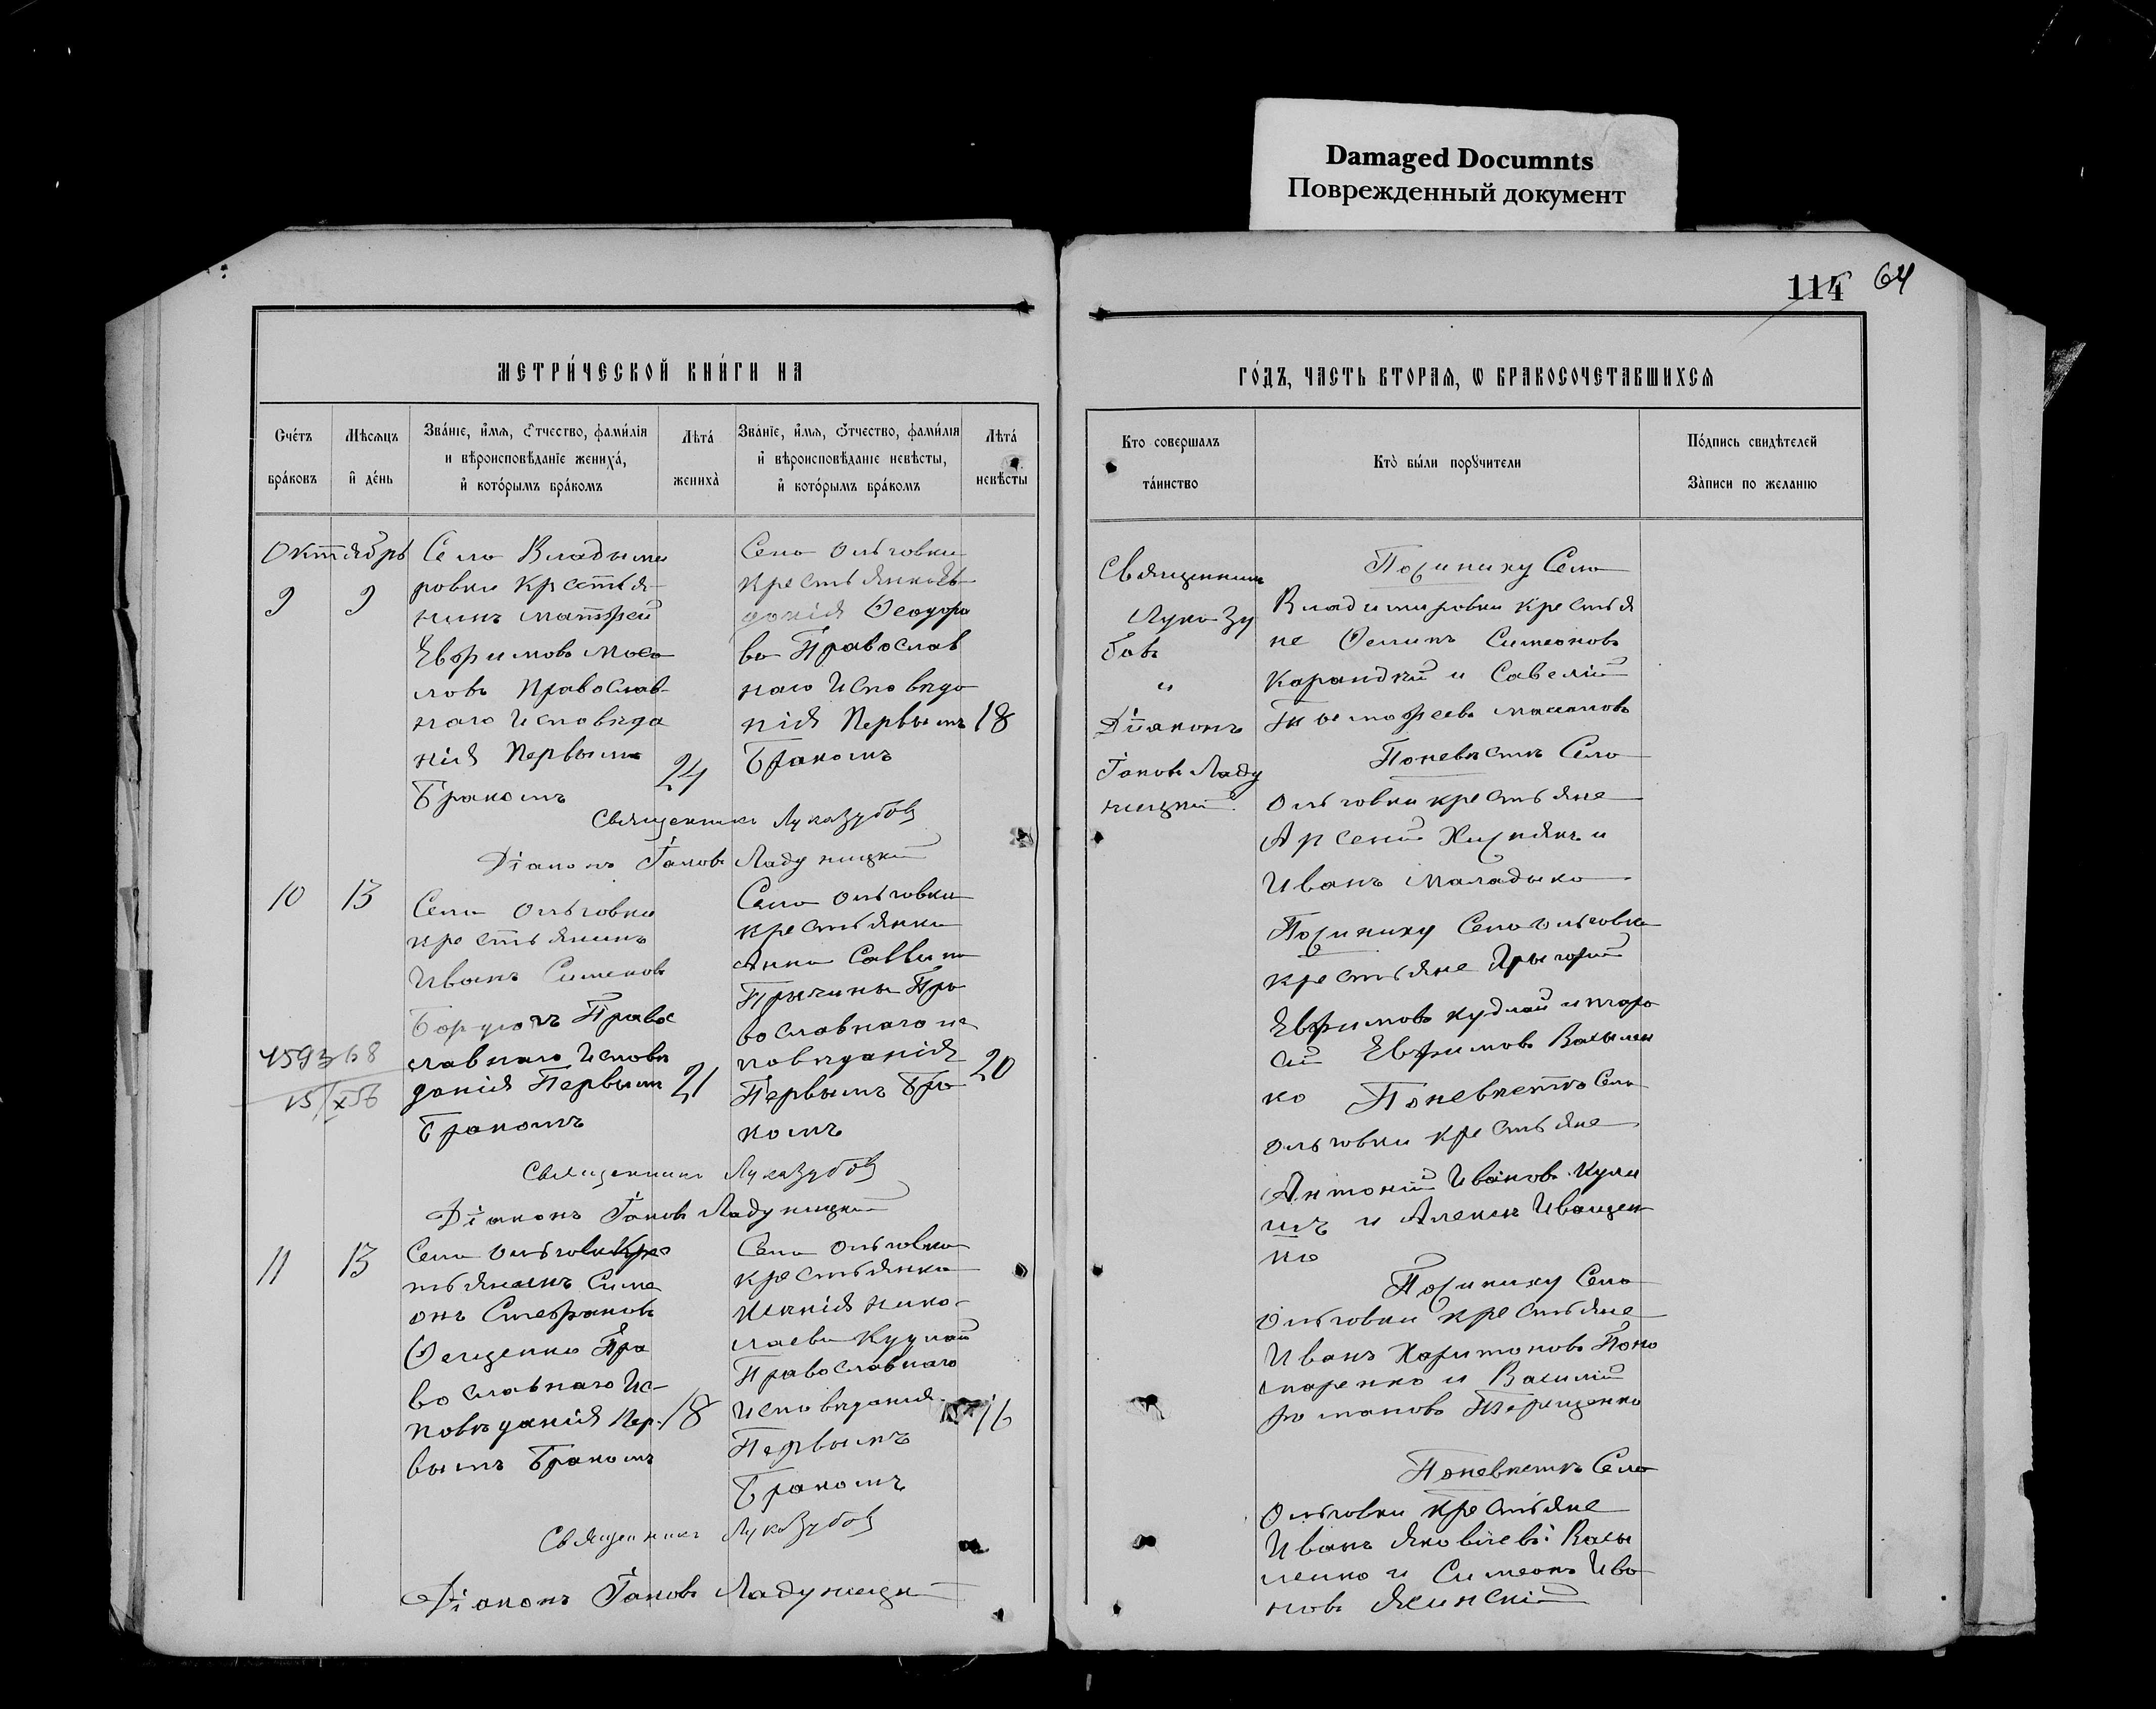 Damaged Documnts
Поврежденный документ
114 64
МЕТРИ́ЧЕСКОЙ КНИ́ГИ НА
ГО́ДЪ, ЧАСТЬ ВТОРАѦ, Ѡ БРАКОСОЧЕТАВШИХСѦ
Сче́тъ бра́ковъ
Мѣсѧцъ и҆ де́нь
Зва́нїе, и҆́мѧ, ѻ҆́тчество, фами́лїѧ
и вѣроисповѣ́данїе жениха̀,
и҆ кото́рымъ бра́комъ
Лѣта̀ жениха̀
Зва́нїе, и҆́мѧ, ѻ҆́тчество, фами́лїѧ
и҆ вѣроисповѣ́данїе невѣ́сты,
и҆ кото́рымъ бра́комъ
Лѣта̀ невѣ́сты
Кто совершалъ та́инство
Кто̀ бы́ли порꙋчители
По́дпись свидѣ́телей
За́писи по желанїю
Октябрь
9
9
Село Владыми
ровки Крестья
нинъ Матфей
Евфимовъ
Православ-
наго Исповѣда
нія Первымъ
Бракомъ
24
Село Ольговки
крестьянка Ев
докія Феодоро
ва Православ
наго Исповѣда
нія Первымъ
Бракомъ
18
Священникъ Лука Зубовъ
Діаконъ Іаковъ Ладуницкій
10
13
Село Ольговки
крестьянинъ
Иванъ Симеонов
Правос
лавнаго Исповѣ
данія Первым
Бракомъ
21
Село Ольговки
крестьянка
Анна Саввина
Пра
вославнаго ис
повѣданія
Первымъ Бра
комъ
20
459368
15/X56
Священникъ Лука Зубовъ
Діаконъ Іаковъ Ладуницкій
11
13
Село Ольговки Крес
тьянинъ Симе
онъ Стефановъ
Пра
вославнаго Ис-
повѣданія Пер-
вымъ Бракомъ
18
Село Ольговки
крестьянка
Нико-
лаева Кудлай
Православнаго
Исповѣданія
Первымъ
Бракомъ
16
Священникъ Лука Зубовъ
Діаконъ Іаковъ Ладуницкій
Священникъ
Лука Зу
бовъ
"
Діяконъ
Іаковъ Ладу
ницкій
Пожениху Село
Владимировки крестья
не Симеоновъ
и Савелій
Поневѣстѣ Село
Ольговки крестьяне
Арсеній и
Иванъ Маладыко
Пожениху Село Ольговки
крестьяне Григорій
Евфимовъ Кудлай и Тара
сій Евфимовъ Васылен
ко Поневѣстѣ Село
Ольговки крестьяне
Антоній Ивановъ Кули
шъ и Алексѣй Иващен
ко
Пожениху Село
Ольговки крестьяне
Иванъ Харитоновъ Поно
маренко и Василій
Романовъ Терещенко
Поневѣстѣ Село
Ольговки крестьяне
Иванъ Яковлевъ Васы
ленко и Симеонъ Ива
новъ Ясинскій